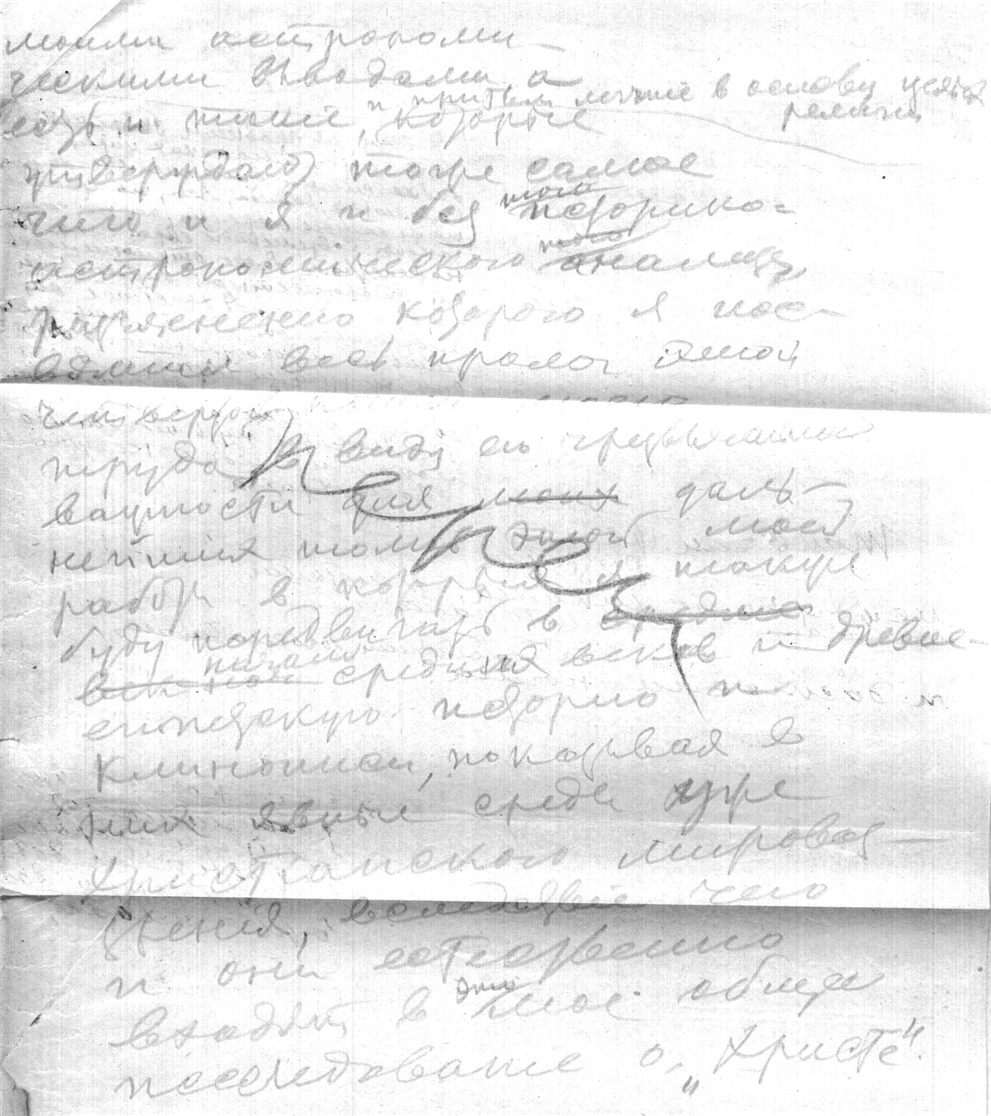 моими астрономи-
ческими выводами, а
и притом лично в основу
есть и такие, которые религии
утверждают тоже самое
что и я и без моего историко-
астрономического анализа,
применению которого я пос-
вятил весь пролог этой
четвертой
труда в виду его чрезвычайной
важности для моих даль-
нейших томов этой моей
работы в которых я также
буду передвигать в средние
века средних веков и древне-
египетскую историю и
клинописи, показывая в
них явные следы уже
христианского мировоз-
зрения, вследствие чего
и они естественно
входят в это мое общее
исследование о „Христе“.